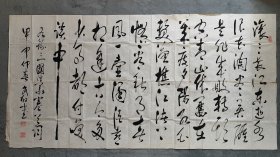 滚滚长江东逝水
浪花淘尽英雄
是非成败转头
空青山依旧
在几度夕阳红
白发渔樵江渚上
惯看秋月春
风一壶浊酒喜
相逢古今多
少事都付笑
谈中
三国演义卷首词
甲申仲